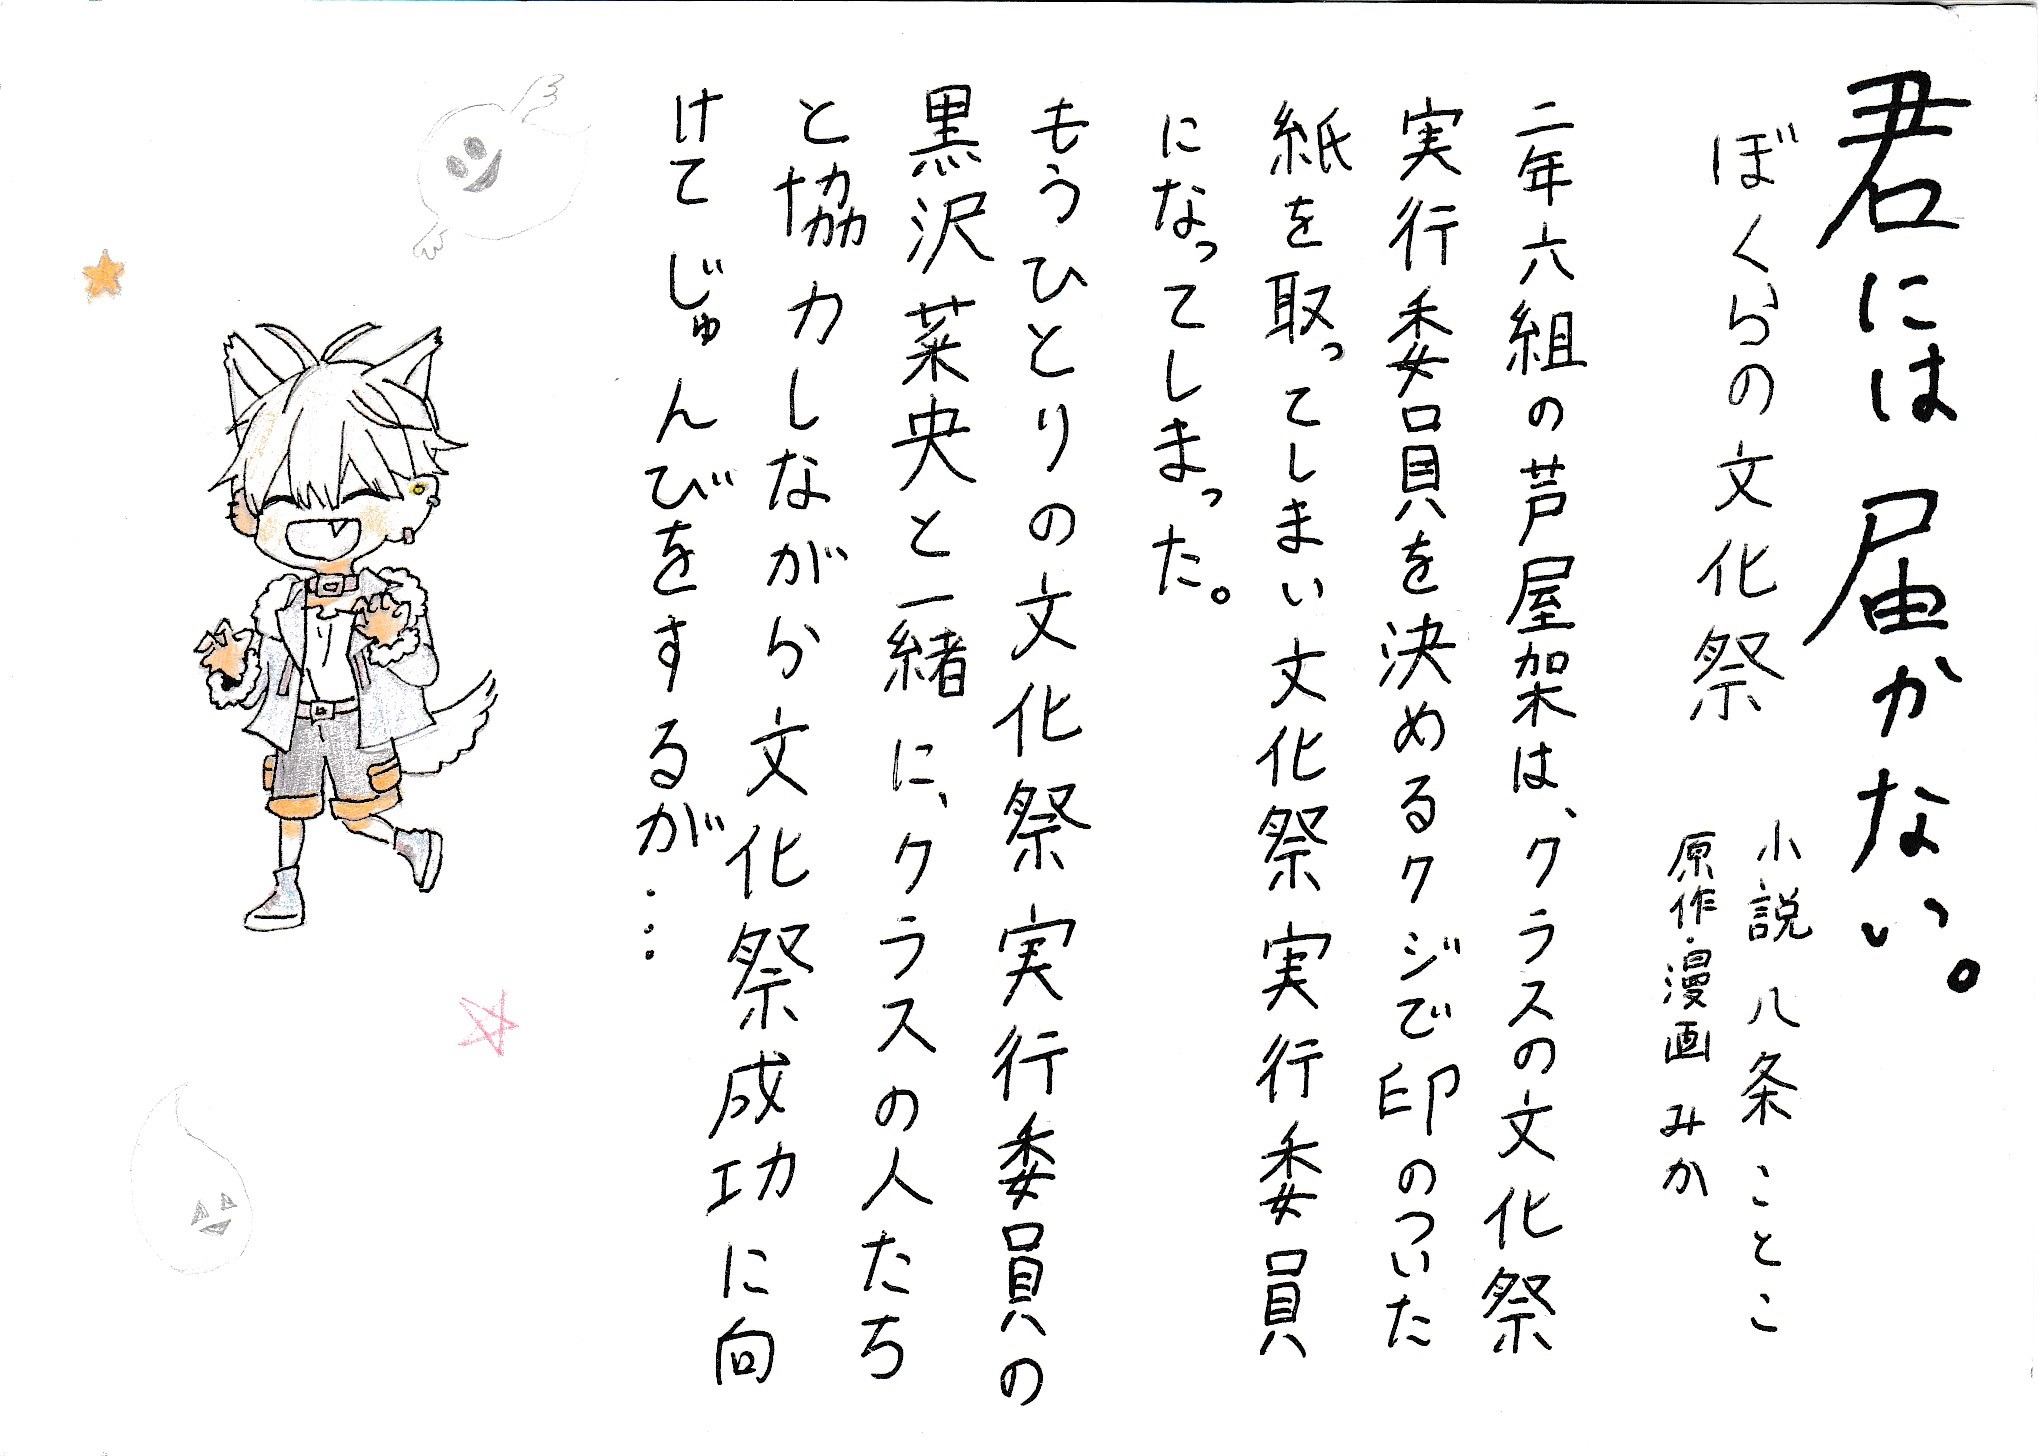 君には届かない。
ぼくらの文化祭
小説 八条ことこ
原作・漫画 みか
二年六組の芦屋架は、クラスの文化祭
実行委員を決めるクジで印のついた
紙を取ってしまい文化祭実行委員
になってしまった。
もうひとりの文化祭実行委員の
黒沢菜央と一緒に、クラスの人たち
と協力しながら文化祭成功に向
けてじゅんびをするが……